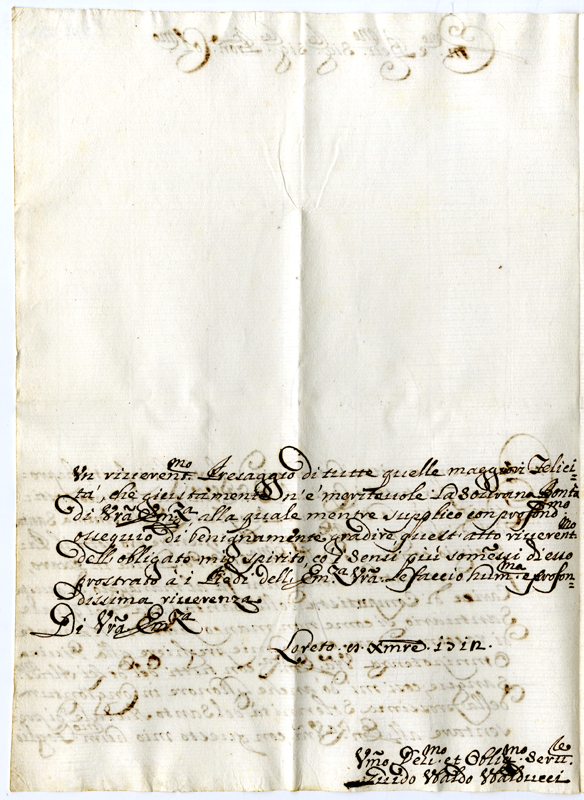 Vn riuerent.mo Presaggio di tutte quelle maggiori Felici-
tà, che giustamente n'è meriteuole la Sourana Bontà
di Vrã Em.za alla quale mentre supplico con profond.mo
ossequio di benignamente gradire quest'atto riuerent.mo
dell'obligato mio spirito, co i sensi più somessi d'esso
prostrato à i Piedi dell'Em.za Vrã. Le faccio hum.ma e profon-
dissima riuerenza
Di Vrã Em.za
Loreto Xmre.
Vmo Deu.mo et Oblig.mo Seru.le
Guido Vbaldo Valducci